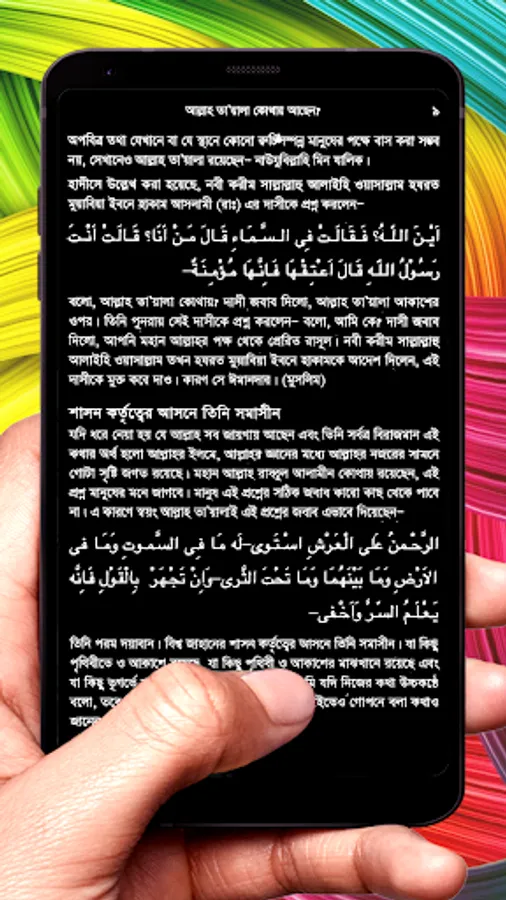 আল্লাহ তা'য়ালা কোথায় আছেন? ৯
অপবিত্র তথা যেখানে বা যে স্থানে কোনো রুচিসম্পন্ন মানুষের পক্ষে বাস করা সম্ভব
নয়, সেখানেও আল্লাহ তা'য়ালা রয়েছেন– নাউযুবিল্লাহি মিন যালিক।
হাদীসে উল্লেখ করা হয়েছে, নবী করীম সাল্লাল্লাহু আলাইহি ওয়াসাল্লাম হযরত
মুয়াবিয়া ইবনে হাকাম আসলামী (রাঃ) এর দাসীকে প্রশ্ন করলেন–
اَيْنَ اللّٰهُ؟ فَقَالَتْ فِى السَّمَاءِ قَالَ مَنْ اَنَا؟ قَالَتْ اَنْتَ
رَسُوْلُ اللّٰهِ قَالَ اَعْتِقْهَا فَاِنَّهَا مُؤْمِنَةٌ–
বলো, আল্লাহ তা'য়ালা কোথায়? দাসী জবাব দিলো, আল্লাহ তা'য়ালা আকাশের
ওপর। তিনি পুনরায় সেই দাসীকে প্রশ্ন করলেন– বলো, আমি কে? দাসী জবাব
দিলো, আপনি মহান আল্লাহর পক্ষ থেকে প্রেরিত রাসূল। নবী করীম সাল্লাল্লাহু
আলাইহি ওয়াসাল্লাম তখন হযরত মুয়াবিয়া ইবনে হাকামকে আদেশ দিলেন, এই
দাসীকে মুক্ত করে দাও। কারণ সে ঈমানদার। (মুসলিম)
শাসন কর্তৃত্বের আসনে তিনি সমাসীন
যদি ধরে নেয়া হয় যে আল্লাহ সব জায়গায় আছেন এবং তিনি সর্বত্র বিরাজমান এই
কথার অর্থ হলো আল্লাহর ইলমে, আল্লাহর জ্ঞানের মধ্যে আল্লাহর নজরের সামনে
গোটা সৃষ্টি জগত রয়েছে। মহান আল্লাহ রাব্বুল আলামীন কোথায় রয়েছেন, এই
প্রশ্ন মানুষের মনে জাগবে। মানুষ এই প্রশ্নের সঠিক জবাব কারো কাছ থেকে পাবে
না। এ কারণে স্বয়ং আল্লাহ তা'য়ালাই এই প্রশ্নের জবাব এভাবে দিয়েছেন–
الرَّحْمٰنُ عَلَى الْعَرْشِ اسْتَوٰى–لَهٗ مَا فِى السَّمٰوٰتِ وَمَا فِى
الْاَرْضِ وَمَا بَيْنَهُمَا وَمَا تَحْتَ الثَّرٰى–وَاِنْ تَجْهَرْ بِالْقَوْلِ فَاِنَّهٗ
يَعْلَمُ السِّرَّ وَاَخْفٰى–
তিনি পরম দয়াবান। বিশ্ব জাহানের শাসন কর্তৃত্বের আসনে তিনি সমাসীন। যা কিছু
পৃথিবীতে ও আকাশে যা কিছু পৃথিবী ও আকাশের মাঝখানে রয়েছে এবং
যা কিছু ভূগর্ভে যদি নিজের কথা উচ্চকণ্ঠে
বলো, গোপনে বলা কথাও
জানেন